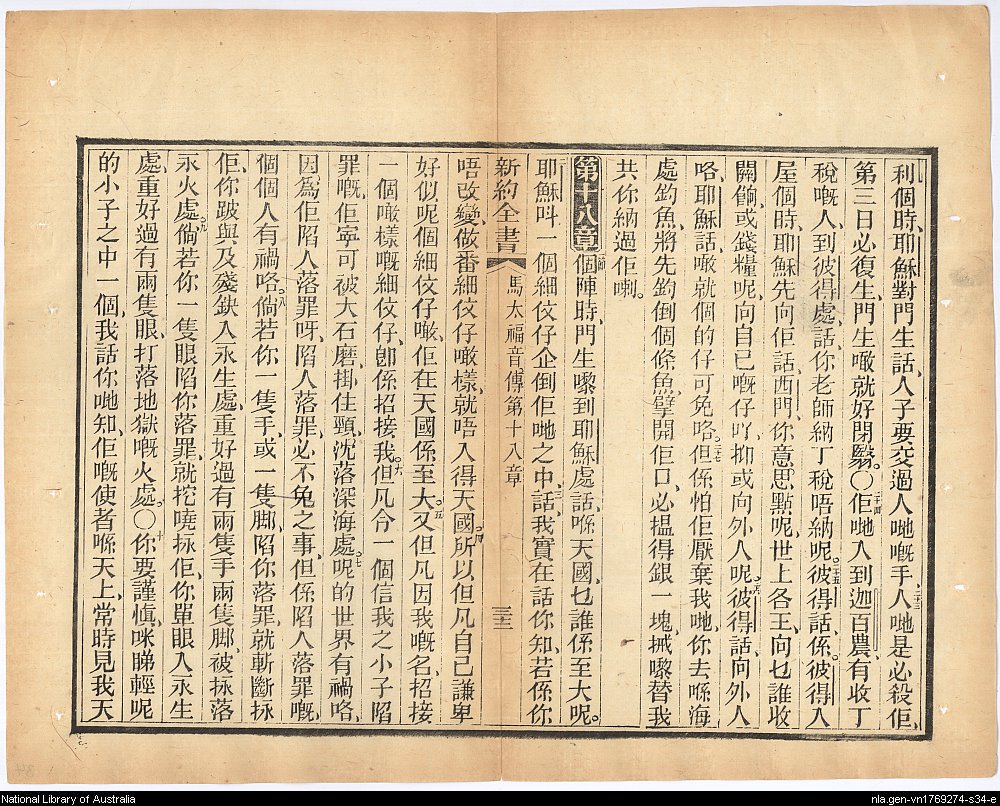 利個時、耶穌對門生話、人子要交過人哋嘅手、二十三人哋是必殺佢、
第三日必復生、門生噉就好閉翳。〇二十四佢哋人到迦百農、有收丁
稅嘅人、到彼得處、話、你老師納丁稅唔納呢。二十五彼得話、係。彼得入
屋個時、耶穌先向佢話、西門、你意思點呢、世上各王、向乜誰收
關餉、或錢糧呢、向自己嘅仔吖、抑或向外人呢。二十六彼得話、向外人
咯、耶穌話、噉就個的仔可免咯。二十七但係怕佢厭棄我哋、你去喺海
處釣魚、將先釣倒個條魚、擘開佢口、必揾得銀一塊、𢬿嚟替我
共你納過佢喇。
第十八章一個陣時、門生嚟到耶穌處、話、喺天國、乜誰係至大呢。二
耶穌叫一個細蚊仔企倒佢哋之中、三話、我實在話你知、若係你
新約全書 馬太福音傳第十八章 三十三
唔改變、做番細蚊仔噉樣、就唔入得天國。四所以但凡自己謙卑
好似呢個細蚊仔噉、佢在天國係至大。五又但凡因我嘅名、招接
一個噉樣嘅細蚊仔、卽係招接我。六但凡令一個信我之小子陷
罪嘅、佢寧可被大石磨、掛住頸、沈落深海處。七呢的世界有禍咯、
因爲佢陷人落罪呀、陷人落罪必不免之事、但係陷人落罪嘅、
個個人有禍咯。八倘若你一隻手、或一隻脚、陷你落罪、就斬斷𢫕
佢、你跛與及殘缺入永生處、重好過有兩隻手兩隻脚、被𢫕落
永火處。九倘若你一隻眼陷你落罪、就挖嘵𢫕佢、你單眼入永生
處、重好過有兩隻眼、打落地獄嘅火處。〇十你要謹愼、咪睇輕呢
的小子之中一個、我話你哋知、佢嘅使者喺天上、常時見我天
National Library of Australia
nla.gen-vn1769274-s34-e